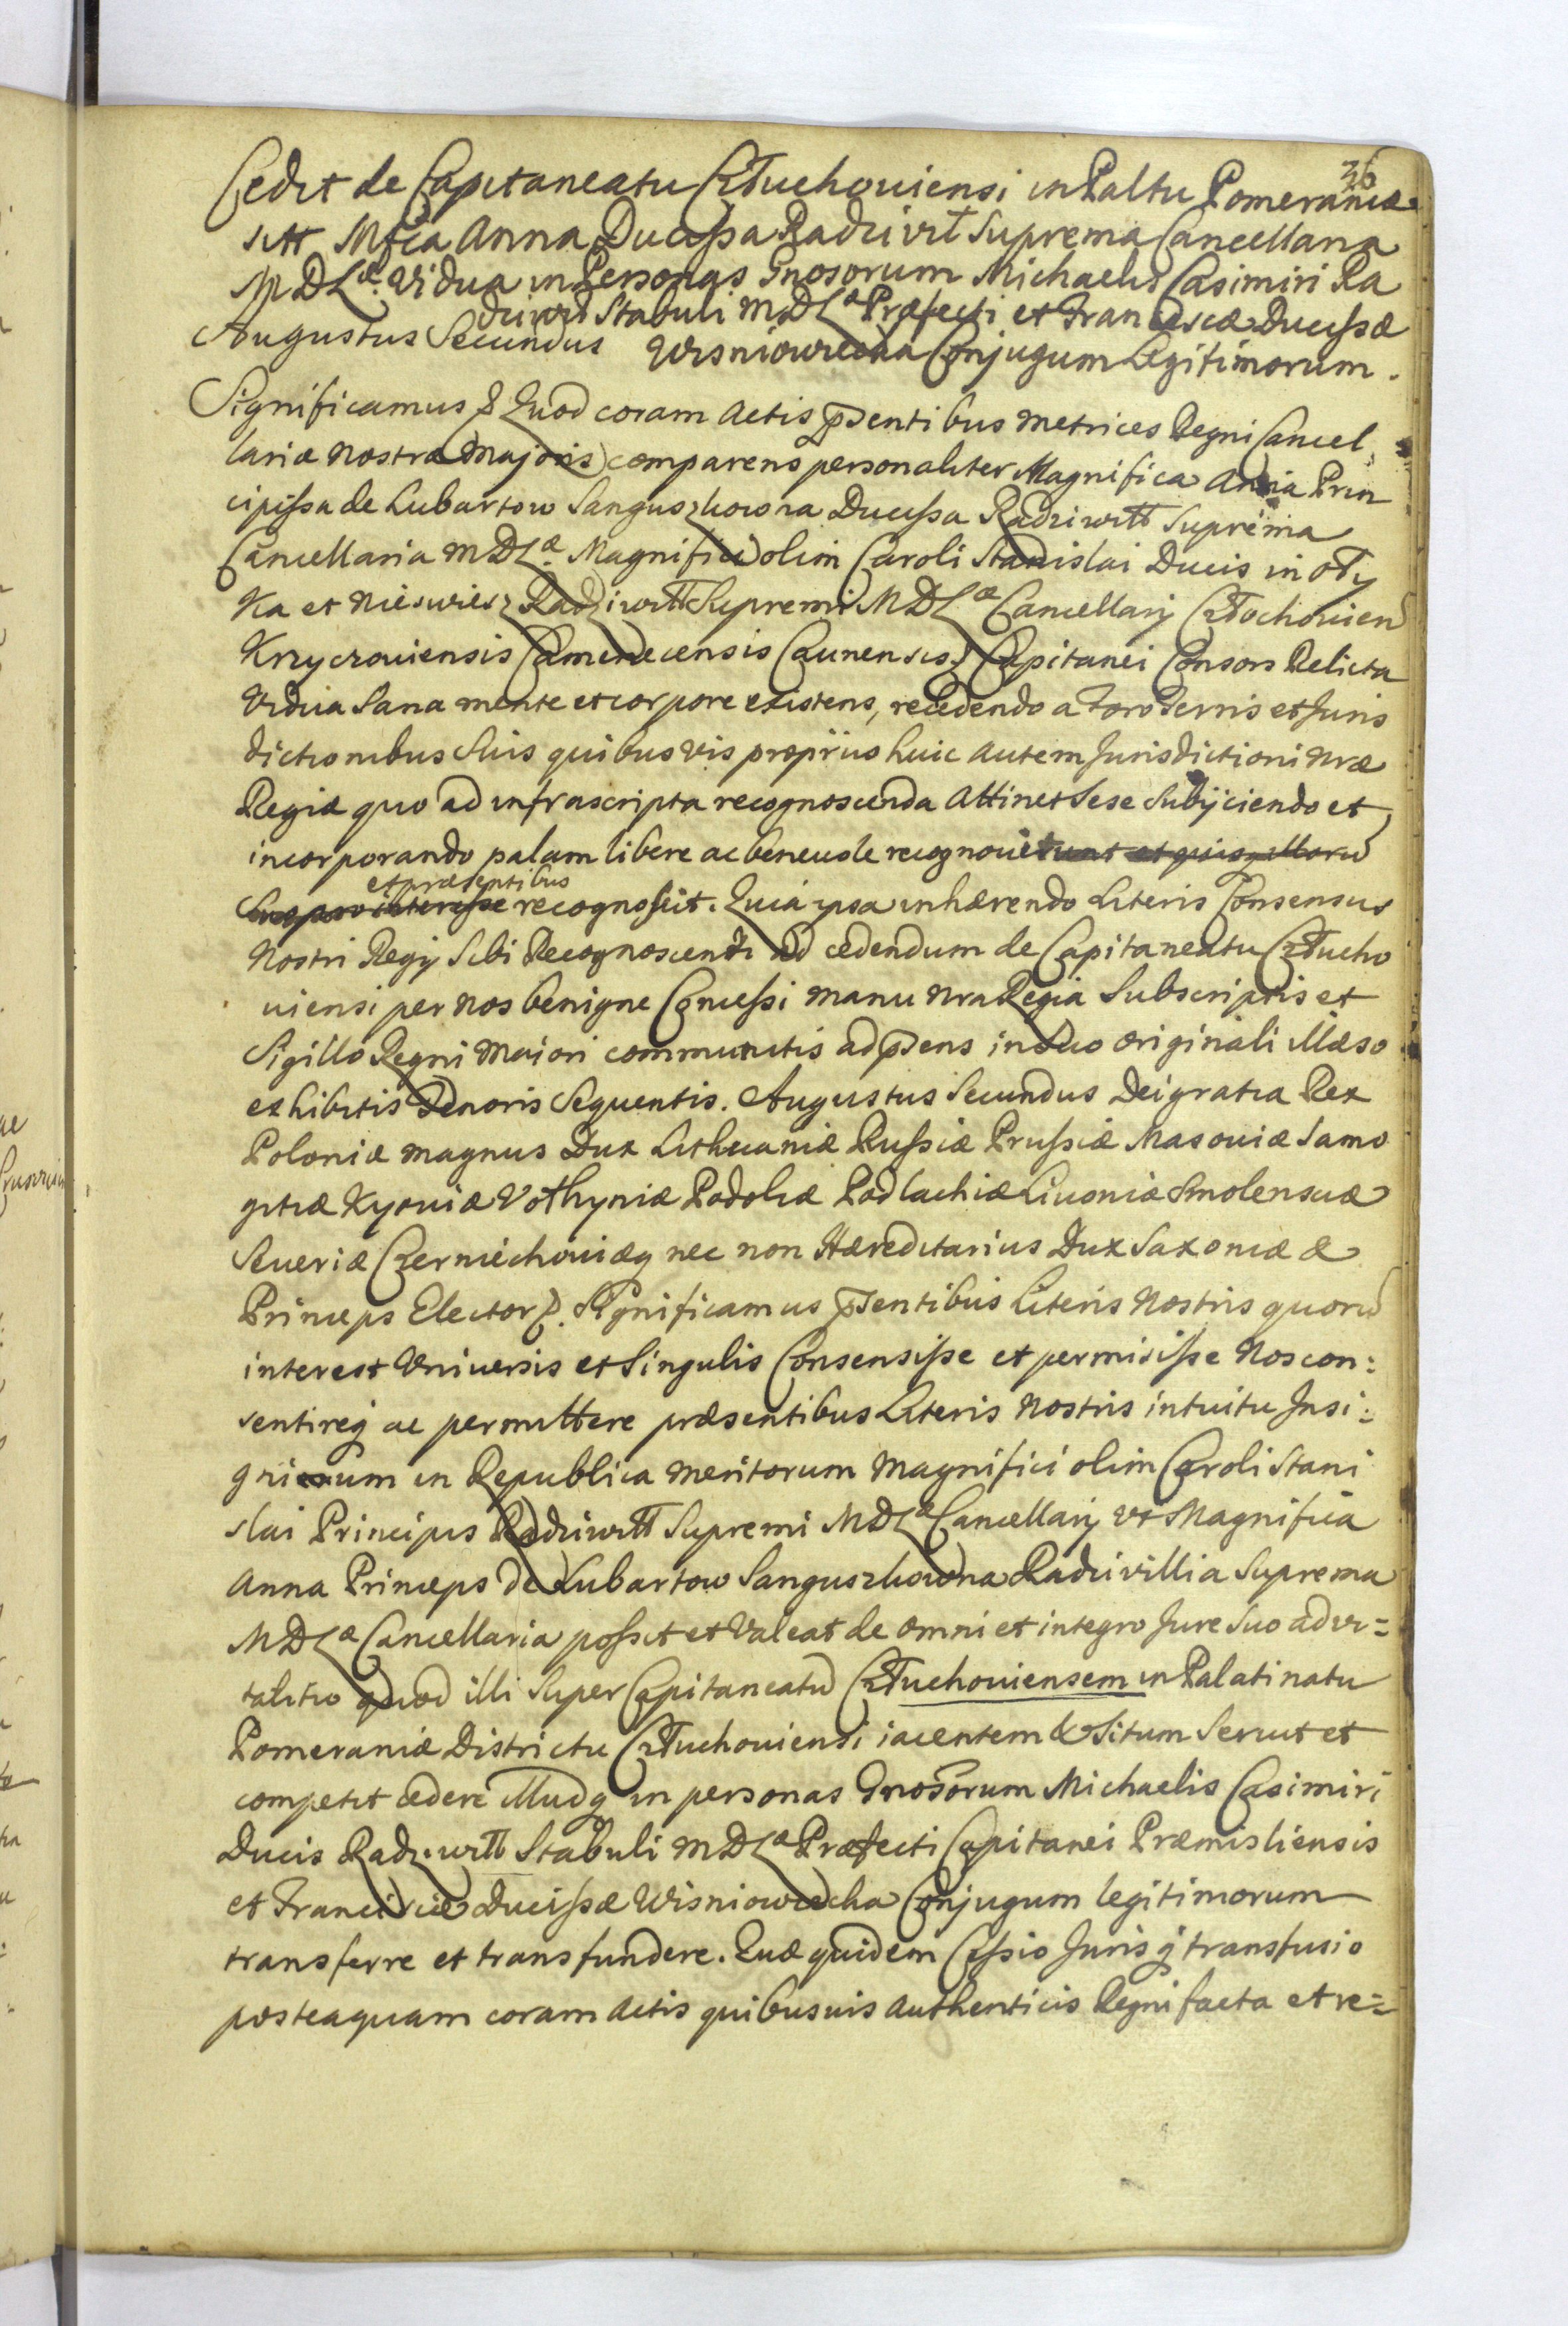 36
Cedit de Capitaneatu CzŁuchouiensi in Paltu Pomeraniæ
sitt Mfca Anna Ducißa Radziwiłł Suprema Cancellaria
MDLæ. Vidua in Personas Gnosorum Michaelis Casimiri Ra
dziwił Stabuli MDLæ Præfecti et Franciscæ Ducißæ
Augustus Secundus Wisniowiecka Conjugum Legitimorum.
Significamus & Quod coram Actis pñtibus Metrices Regni Cancel
lariæ Nostræ Majoris comparens personaliter Magnifica Anna Prin
cipißa de Lubartow Sanguszkowna Ducißa Radziwiłł Suprema
Cancellaria MDLæ. Magnifici olim Caroli Stanislai Ducis in Oły
Ka et Nieswiesz Radziwiłł Supremi MDLæ Cancellarij CzŁochouien
Krzyczouiensis Camenecensis Caunensis & Capitanei Consors Relicta
Vidua Sana mente et corpore existens, recedendo a Foro Terris et Juris
dictionibus Suis quibusvis propriis huic autem Jurisdictioni Nræ
Regiæ quo ad infrascripta recognoscenda Attinet Sese Subijciendo et
incorporando palam libere ac beneuole recognouit
et præsentibus
recognoscit. Quia ipsa inhærendo Literis Consensus
Nostri Regij Sibi Recognoscenti ad cedendum de Capitaneatu CzŁucho
uiensi per Nos benigne Conceßi Manu Nra Regia Subscriptis et
Sigillo Regni Maiori communitis ad pñsens in Suo Originali illæso
exhibitis Tenoris Sequentis. Augustus Secundus Dei gratia Rex
Poloniæ Magnus Dux Lithuaniæ Rußiæ Prußiæ Masouiæ Samo
gitiæ Kyouiæ Vołhyniæ Podoliæ Podlachiæ Liuoniæ Smolensciæ
Seueriæ Czerniechouiæq nec non Hæreditarius Dux Saxoniæ &
Princeps Elector &. Significamus pñsentibus Literis Nostris quorũ
interest Vniuersis et Singulis Consensiße et permisiße Nos con:
sentireq ac permittere præsentibus Literis Nostris intuitu Insi:
gnium in Republica Meritorum Magnifici olim Caroli Stani
slai Principis Radziwiłł Supremi MDLæ Cancellarij vt Magnifica
Anna Princeps de Lubartow Sanguszkowna Radzivillia Suprema
MDLæ Cancellaria poßit et Valeat de omni et integro Jure Suo advi=
talitio quod illi Super Capitaneatũ CzŁuchouiensem in Palatinatu
Pomeraniæ Districtu CzŁuchouiensi iacentem & Situm Seruit et
competit cedere Illudq in personas Gnosorum Michaelis Casimiri
Ducis Radziwiłł Stabuli MDLæ Præfecti Capitanei Præmisliensis
et Franciscæ Ducißæ Wisniowiecka Conjugum legitimorum
transferre et transfundere. Quæ quidem Ceßio Juris q transfusio
posteaquam coram Actis quibusuis Authenticis Regni facta et re=